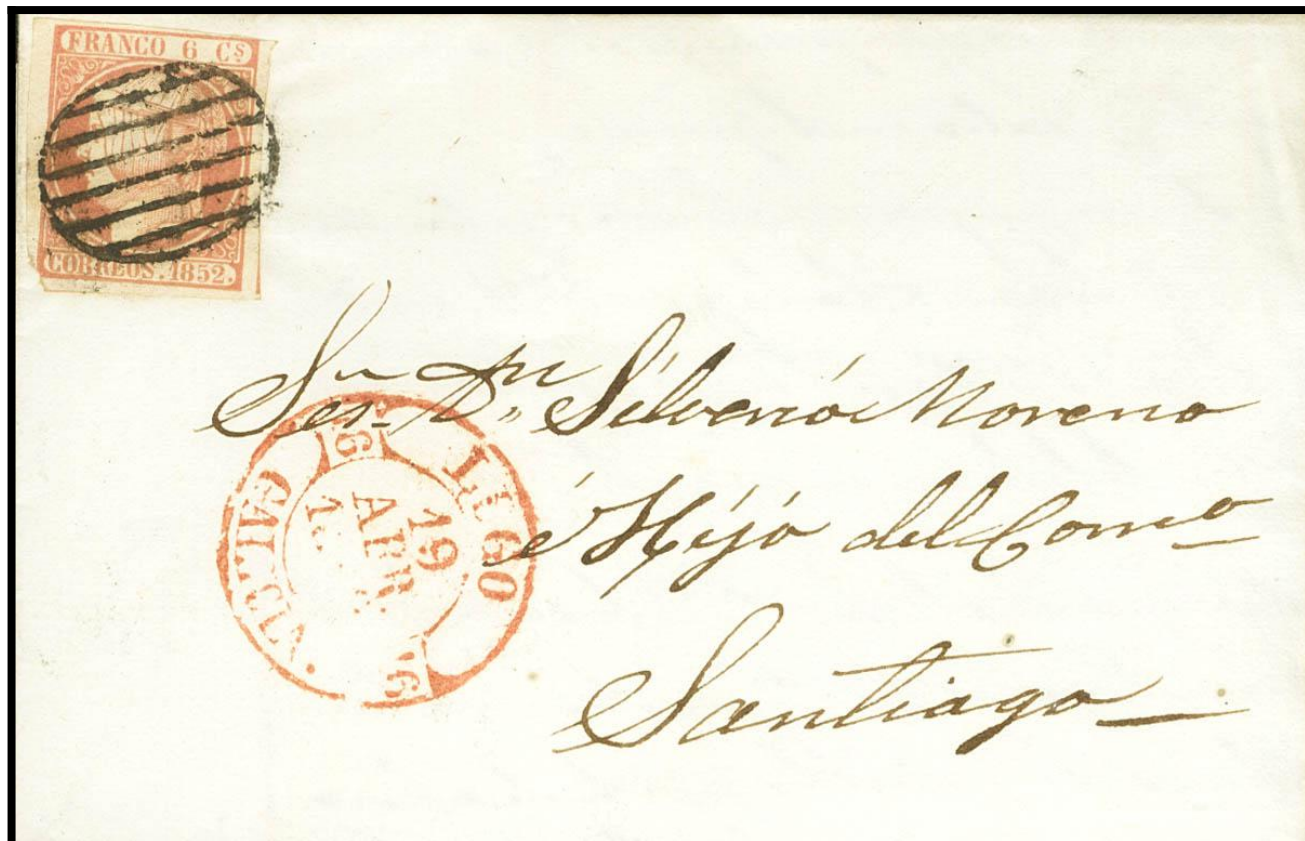 FRANCO 6 Cs
CORREOS. 1852.
Sr. Dn. Silverio Moreno
é Hijo del Comº
Santiago
LUGO
19
ABR.
GALICIA.